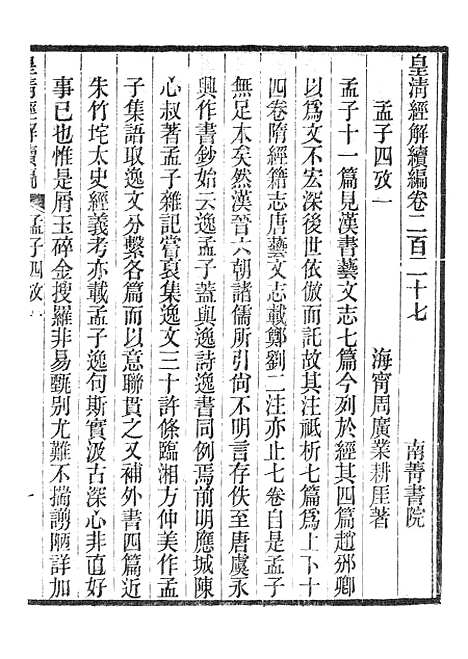 皇淸經解續編卷二百二十七
南菁書院
孟子四攷一
海寧周廣業耕厓著
孟子十一篇見漢書藝文志七篇今列於經其四篇趙邠卿
以爲文不宏深後世依倣而託故其注祗析七篇爲上下十
四卷隋經籍志唐藝文志載鄭劉二注亦止七卷自是孟子
無足本矣然漢晉六朝諸儒所引尙不明言存佚至唐虞永
興作書鈔始云逸孟子蓋與逸詩逸書同例焉前明應城陳
心叔著孟子雜記嘗裒集逸文三十許條臨湘方仲美作孟
子集語取逸文分繫各篇而以意聯貫之又補外書四篇近
朱竹垞太史經義考亦載孟子逸句斯實汲古深心非直好
事已也惟是屑玉碎金搜羅非易甄别尤難不揣謭陋詳加
皇淸經解續編
孟子四攷一
一